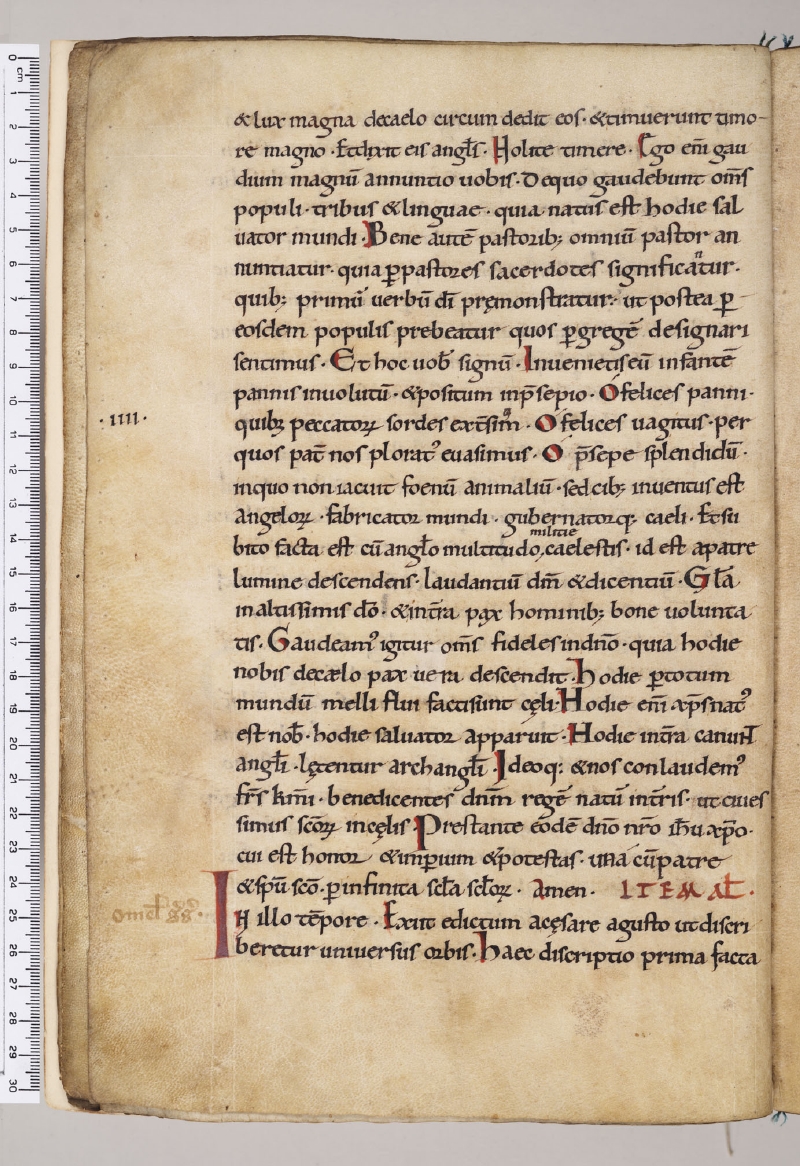 & lux magna decaelo circum dedit eos· &timuerunt timo-
re magno · Etdixit eis angłs· Nolite timere· Ego eni͞ gau
dium magnū annuntio uobis· Dequo gaudebunt om͞s
populi · tribus &linguae · quia natus est hodie sal
uator mundi · Bene autē pastorib; omniū pastor an
nuntiatur· quia ꝑpastores sacerdotes significatur·
quib; primū uerbū di͞ pręmonstratur· ut postea ꝑ
eosdem populis prebeatur quos ꝑgregē designari
sentimus · Et hoc uob̄ signū · Inuenietis eū infantē
pannis inuolutū · &positum inp̄sepio · O felices panni·
·IIII·
quib; peccatoꝝ sordes ext͞sim̄ · O felices uagitus· per
quos pat͞ nos plorat᾽ euasimus · O p̄sepe splendidū·
inquo non iacuit foenū animaliū · sed cib; inuentus est
Angeloꝝ · fabricator mundi · gubernatorq; caeli · Etsu
bito facta est cū angło multitudo militie caelestis · id est apatre
lumine descendens · laudantiū dm̄ &dicentiū · Gła
inaltissimis do͞ · &intr͞a pax hominib; bone uolunta
tis · Gaudeam᾽ igitur om͞s fideles indn͞o · quia hodie
nobis decælo pax uera descendit · hodie ꝑtotum
mundū melli flui facti sunt cęli · Hodie eni͞ xp͞s nat᾽
est nob̄ · hodie saluator apparuit · Hodie intr͞a canunt
angłi · lętentur archangłi · Ideoq; &nos conlaudem᾽
fr͞s km̄i · benedicentes dn͞m regē natū int͞ris · ut ciues
simus sco͞ꝝ incęlis · Prestante eodē dn͞o nr͞o ih͞u xp͞o·
cui est honor &imperium &potestas · una cū patre
&sp͞u sco͞ · ꝑ infinita scła scłoꝝ · Amen · ITEM AŁ·
In illo te͞pore · Exiit edictum acęsare agusto ut discri
beretur uniuersus orbis · Haec discriptio prima facta